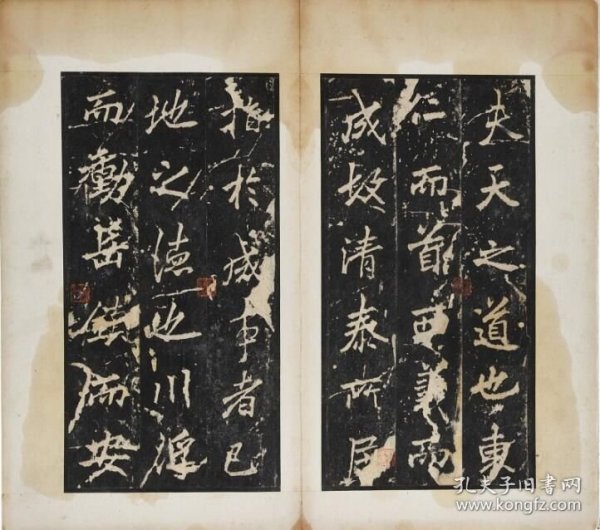 夫天之道也東
仁而首西義而
成故清泰所居
指於成事者已
地之德也川浮
而動岳鎮而安
孔夫子旧书网
www.kongfz.com